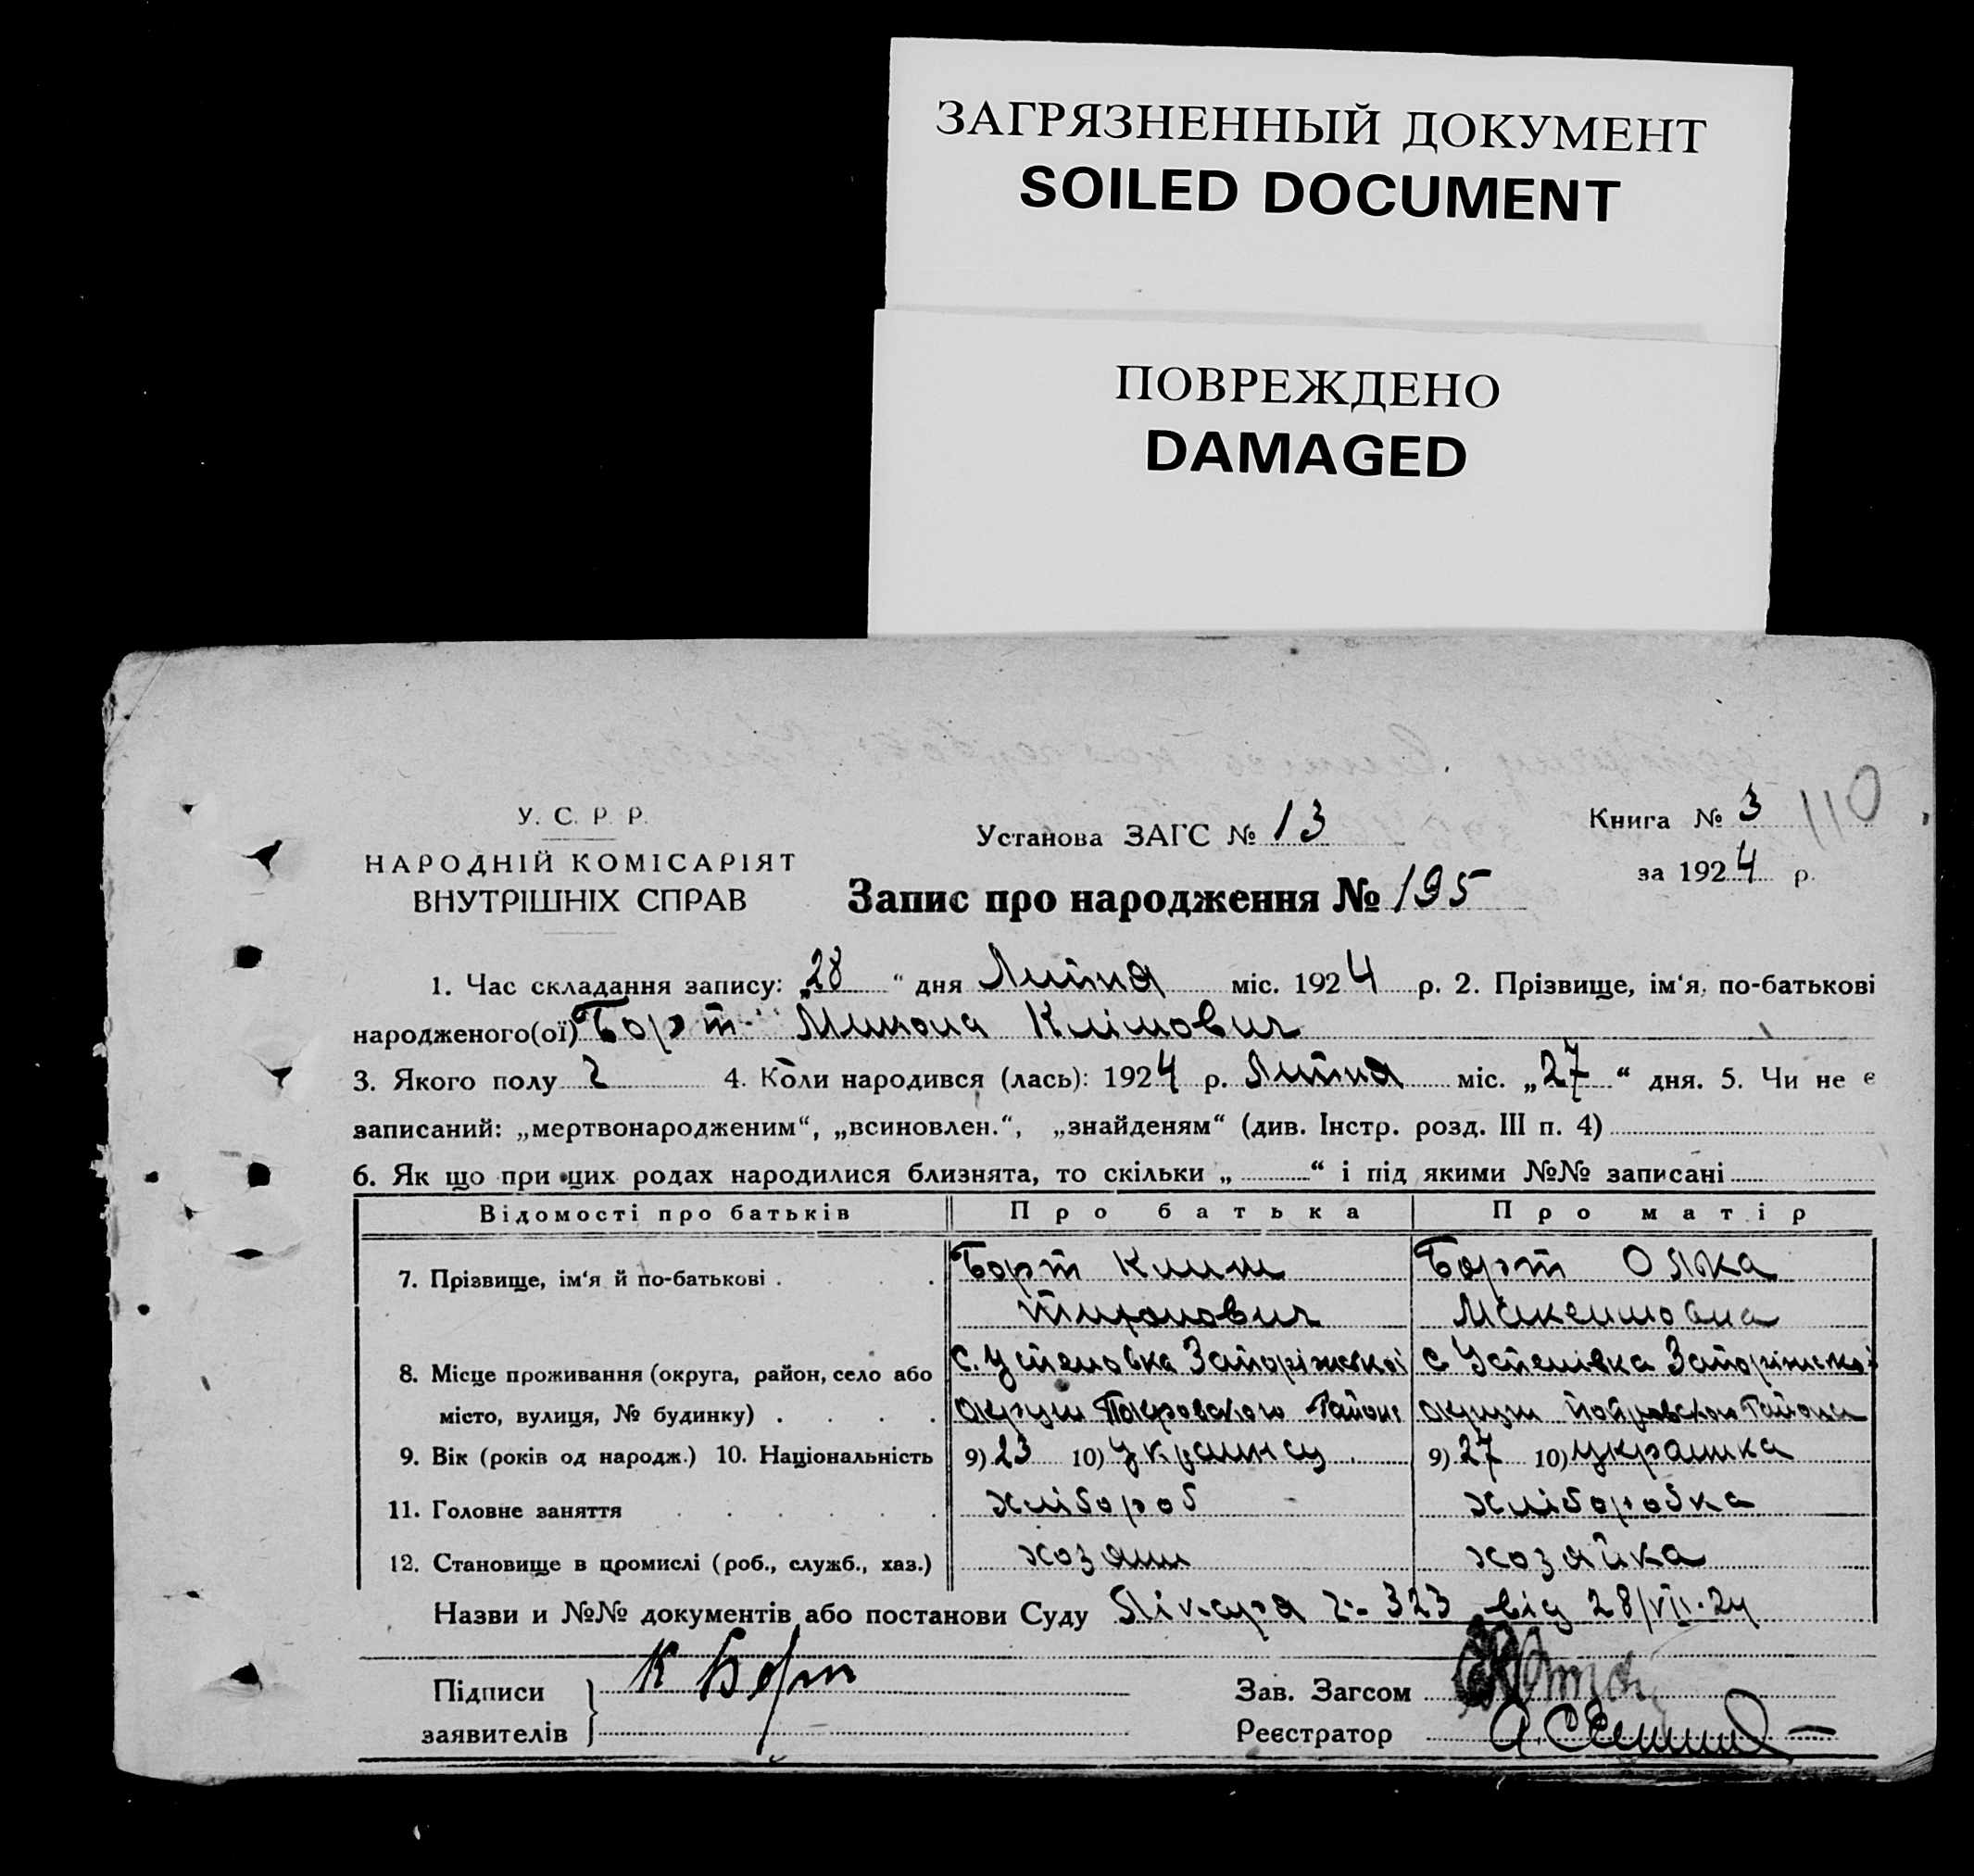 ЗАГРЯЗНЕННЫЙ ДОКУМЕНТ
SOILED DOCUMENT
ПОВРЕЖДЕНО
DAMAGED
У. С. Р. Р.
НАРОДНІЙ КОМІСАРІЯТ
ВНУТРІШНІХ СПРАВ
Установа ЗАГС № 13
Книга № 3 110
за 1924 р.
Запис про народження № 195
1. Час складання запису: „28“ дня Липня міс. 1924 р. 2. Прізвище, ім'я, по-батькові
народженого(ої) Борт Микола Клімович
3. Якого полу ч 4. Коли народився (лась): 1924 р. Липня міс. „27“ дня. 5. Чи не є
записаний: „мертвонародженим“, „всиновлен.“, „знайденям“ (див. Інстр. розд. III п. 4)
6. Як що при цих родах народилися близнята, то скільки „ “ і під якими №№ записані
Відомості про батьків Про батька Про матір
7. Прізвище, ім'я й по-батькові Борт Клим Борт
Макеимовна
8. Місце проживання (округа, район, село або с. Успеновка Запоріжської с. Успенівка Запоріжської
місто, вулиця, № будинку) округи Покровського Району округи Покровского Района
9. Вік (років од народж.) 10. Національність 9) 23 10) Украинец 9) 27 10) Украинка
11. Головне заняття хлібороб хліборобка
12. Становище в промислі (роб., служб., хаз.) хозяин хозяйка
Назви и №№ документів або постанови Суду Лікаря ч. 323 від 28/VII-24
Підписи К Борт Зав. Загсом
заявителів Реєстратор